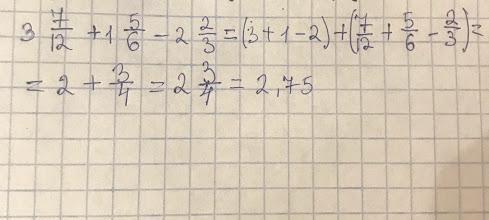 3 7/12 + 1 5/6 - 2 2/3 = (3 + 1 - 2) + (7/12 + 5/6 - 2/3) =
= 2 + 3/4 = 2 3/4 = 2,75